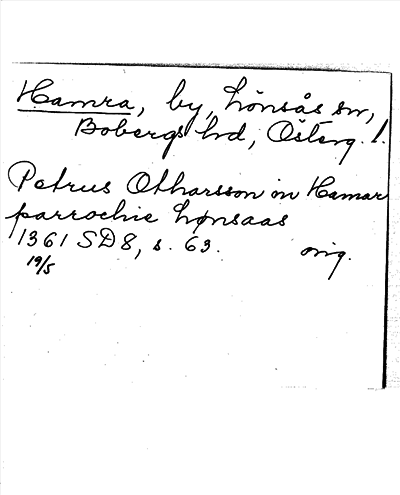 Hamra, by, Lönsås sn,
Bobergs hd, Österg. l.
Petrus Otharsson in Hamar
parrochie Lønsaas
1361 SD8, s. 63. orig.
19/5